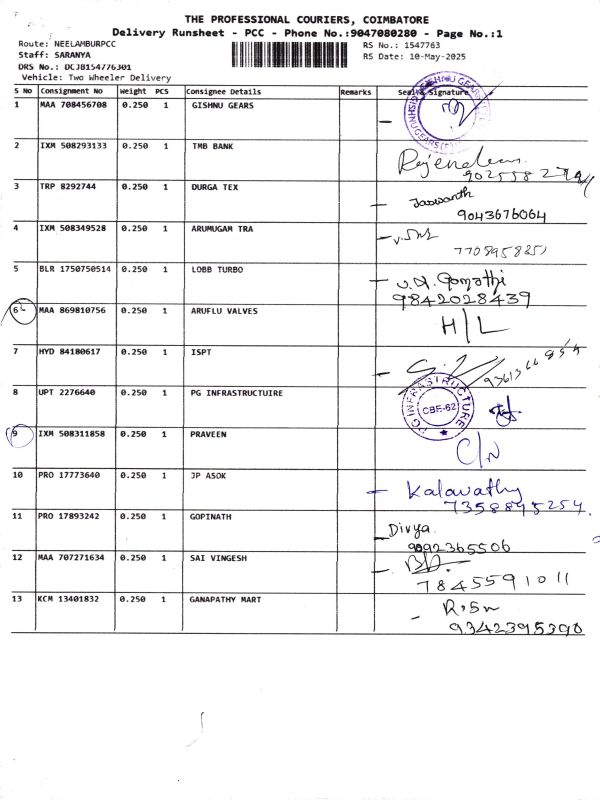 THE PROFESSIONAL COURIERS, COIMBATORE
Delivery Runsheet - PCC - Phone No.:9047080280 - Page No.:1
Route: NEELAMBURPCC
RS No.: 1547763
Staff: SARANYA
RS Date: 10-May-2025
DRS No.: DCJB154776301
Vehicle: Two Wheeler Delivery
S No Consignment No Weight PCS Consignee Details Remarks Seal & Signature
1 MAA 708456708 0.250 1 GISHNU GEARS
2 IXM 508293133 0.250 1 TMB BANK
Rajendran
3 TRP 8292744 0.250 1 DURGA TEX Jaswanth
9043676064
4 IXM 508349528 0.250 1 ARUMUGAM TRA
7708958251
5 BLR 1750750514 0.250 1 LOBB TURBO Gomathi
9842028439
6 MAA 869810756 0.250 1 ARUFLU VALVES H/L
7 HYD 84180617 0.250 1 ISPT
8 UPT 2276640 0.250 1 PG INFRASTRUCTUIRE PG INFRASTRUCTURE CBE-62
9 IXM 508311858 0.250 1 PRAVEEN C/N
10 PRO 17773640 0.250 1 JP ASOK Kalavathy
7358895254
11 PRO 17893242 0.250 1 GOPINATH Divya
9092365506
12 MAA 707271634 0.250 1 SAI VINGESH
7845591011
13 KCM 13401832 0.250 1 GANAPATHY MART
9342395390